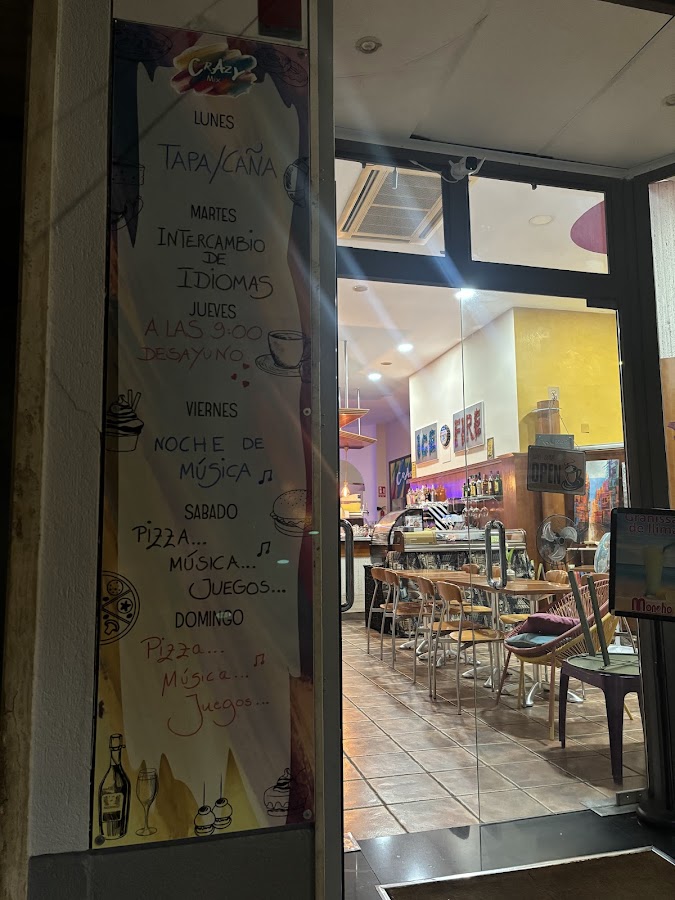 CRAZY
Mix
LUNES
TAPA/CAÑA
MARTES
INTERCAMBIO
DE
IDIOMAS
JUEVES
A LAS 9:00
DESAYUNO
VIERNES
NOCHE DE
MÚSICA
SABADO
PIZZA...
MÚSICA...
JUEGOS...
DOMINGO
Pizza...
Música...
Juegos...
FIRE
OPEN